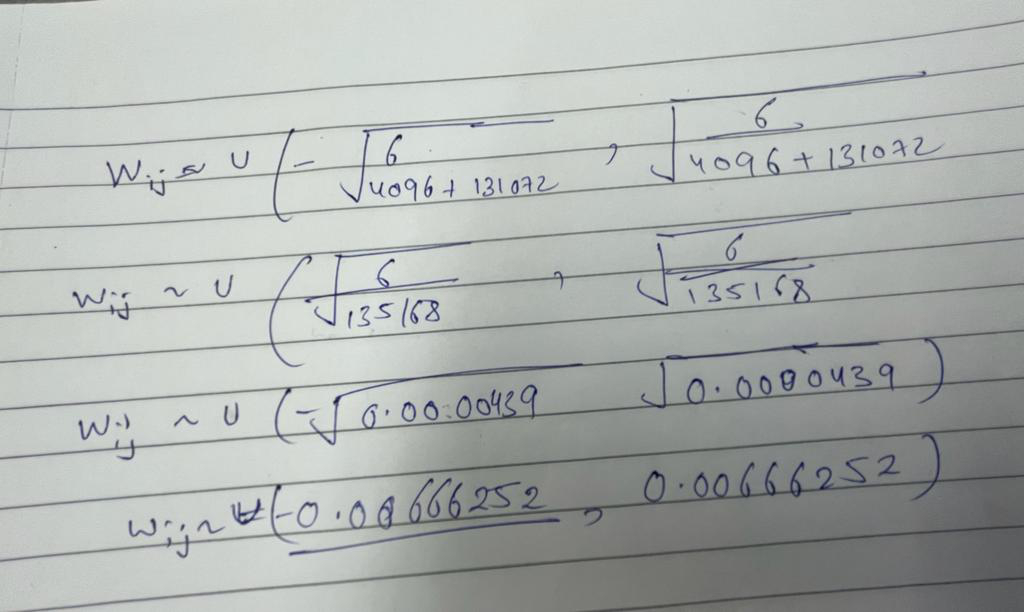 W_ij ~ U ( - √(6 / 4096 + 131072) , √(6 / 4096 + 131072)
W_ij ~ U ( √(6 / 135168) , √(6 / 135168)
W_ij ~ U ( -√0.0000439 √0.0000439 )
W_ij ~ U ( -0.00666252 , 0.00666252 )